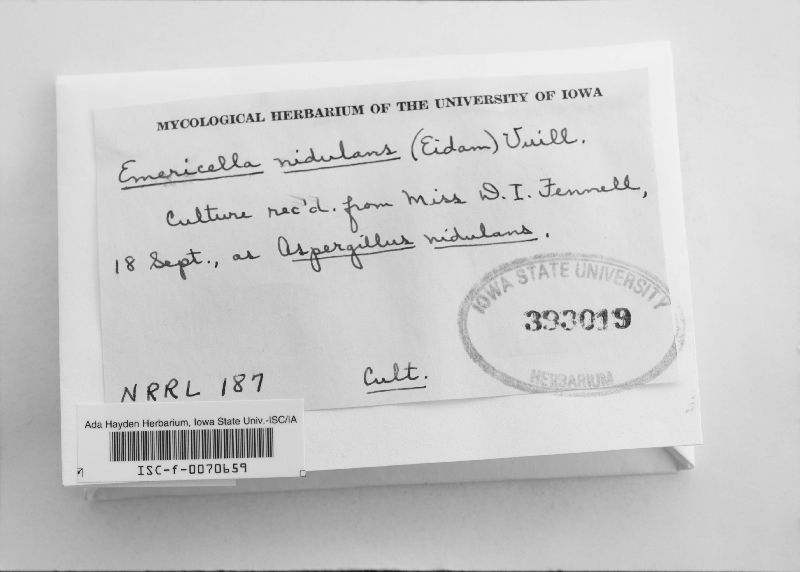 MYCOLOGICAL HERBARIUM OF THE UNIVERSITY OF IOWA
Emericella nidulans (Eidam) Vuill.
Culture rec'd. from Miss D. I. Fennell,
18 Sept., as Aspergillus nidulans.
IOWA STATE UNIVERSITY
393019
HERBARIUM
NRRL 187
Cult.
Ada Hayden Herbarium, Iowa State Univ.-ISC/IA
ISC-f-0070659